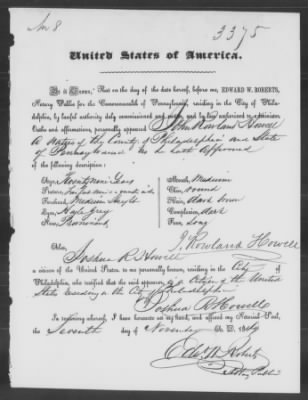 No 8
3375
United States of America.
Be it Known, That on the day of the date hereof, before me, EDWARD W. ROBERTS,
Notary Public for the Commonwealth of Pennsylvania, residing in the City of Phila-
delphia, by lawful authority duly commissioned and sworn, and by law authorized to administer
Oaths and affirmations, personally appeared John Rowland Howell
A Native of the County of Philadelphia and State
of Pennsylvania
of the following description:
Age, Twenty Nine Years
Stature, five feet
Forehead, Medium height
Eyes, Hazle Grey
Nose, Prominent
Mouth, Medium
Chin, round
Hair, dark brown
Complexion, dark
Face, Long
J. Rowland Howell
Also, Joshua R Howell
a citizen of the United States, to me personally known, residing in the City of
Philadelphia, who testified that the said appearer, is a Citizen of the United
States residing in the City of Philadelphia
Joshua R Howell
In testimony whereof, I have hereunto set my hand, and affixed my Notarial Seal, this
Seventh day of November A. D. 1849
Edw. W. Roberts
Notary Public